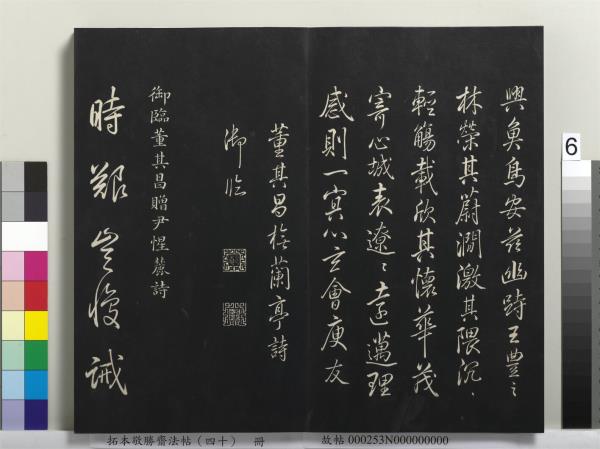 興魚鳥安茲幽跱王豐之
林榮其蔚澗激其隈汎〻
輕觴載欣其懷華茂
寄心域表遼〻遠邁理
感則一冥心玄會庾友
董其昌 蘭亭詩
御臨
御臨董其昌贈尹惺麓詩
時艱豈復誡
6
拓本敬勝齋法帖(四十) 冊
故帖 000253N000000000